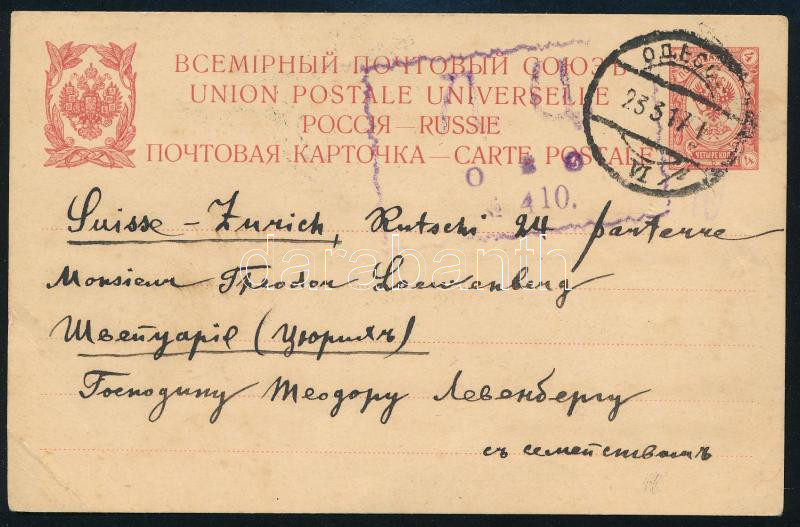 ВСЕМІРНЫЙ ПОЧТОВЫЙ СОЮЗЪ
UNION POSTALE UNIVERSELLE
РОССІЯ — RUSSIE
ПОЧТОВАЯ КАРТОЧКА — CARTE POSTALE
П Ц
О В О
№ 410.
ОДЕСС
23 3 17
VI
4 4
ЧЕТЫРЕ КОП
Suisse – Zurich, Rutschi 24 parterre
Monsieur Theodor Loewenberg
Швейцаріе (Цюрихъ)
Господину Теодору Левенбергу
съ семействомъ
darabanth